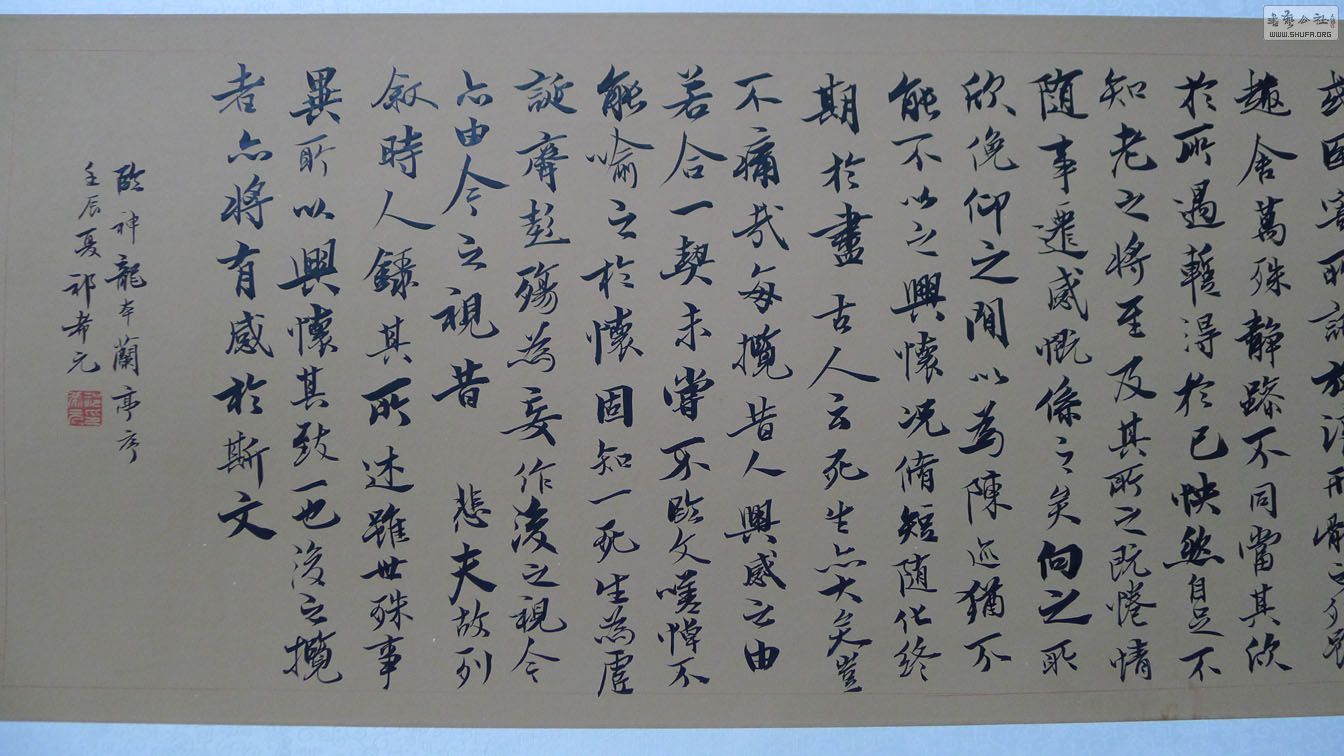 或因寄所託放浪形骸之外雖
趣舍萬殊靜躁不同當其欣
於所遇蹔得於己怏然自足不
知老之將至及其所之既惓情
随事遷感慨係之矣向之所
欣俛仰之閒以為陳迹猶不
能不以之興懷況脩短随化終
期於盡古人云死生亦大矣豈
不痛哉每攬昔人興感之由
若合一契未嘗不臨文嗟悼不
能喻之於懷固知一死生為虛
誕齊彭殤為妄作後之視今
亦由今之視昔 悲夫故列
敘時人錄其所述雖世殊事
異所以興懷其致一也後之攬
者亦將有感於斯文
臨神龍本蘭亭序
壬辰夏祁希元
書藝公社
WWW.SHUFA.ORG